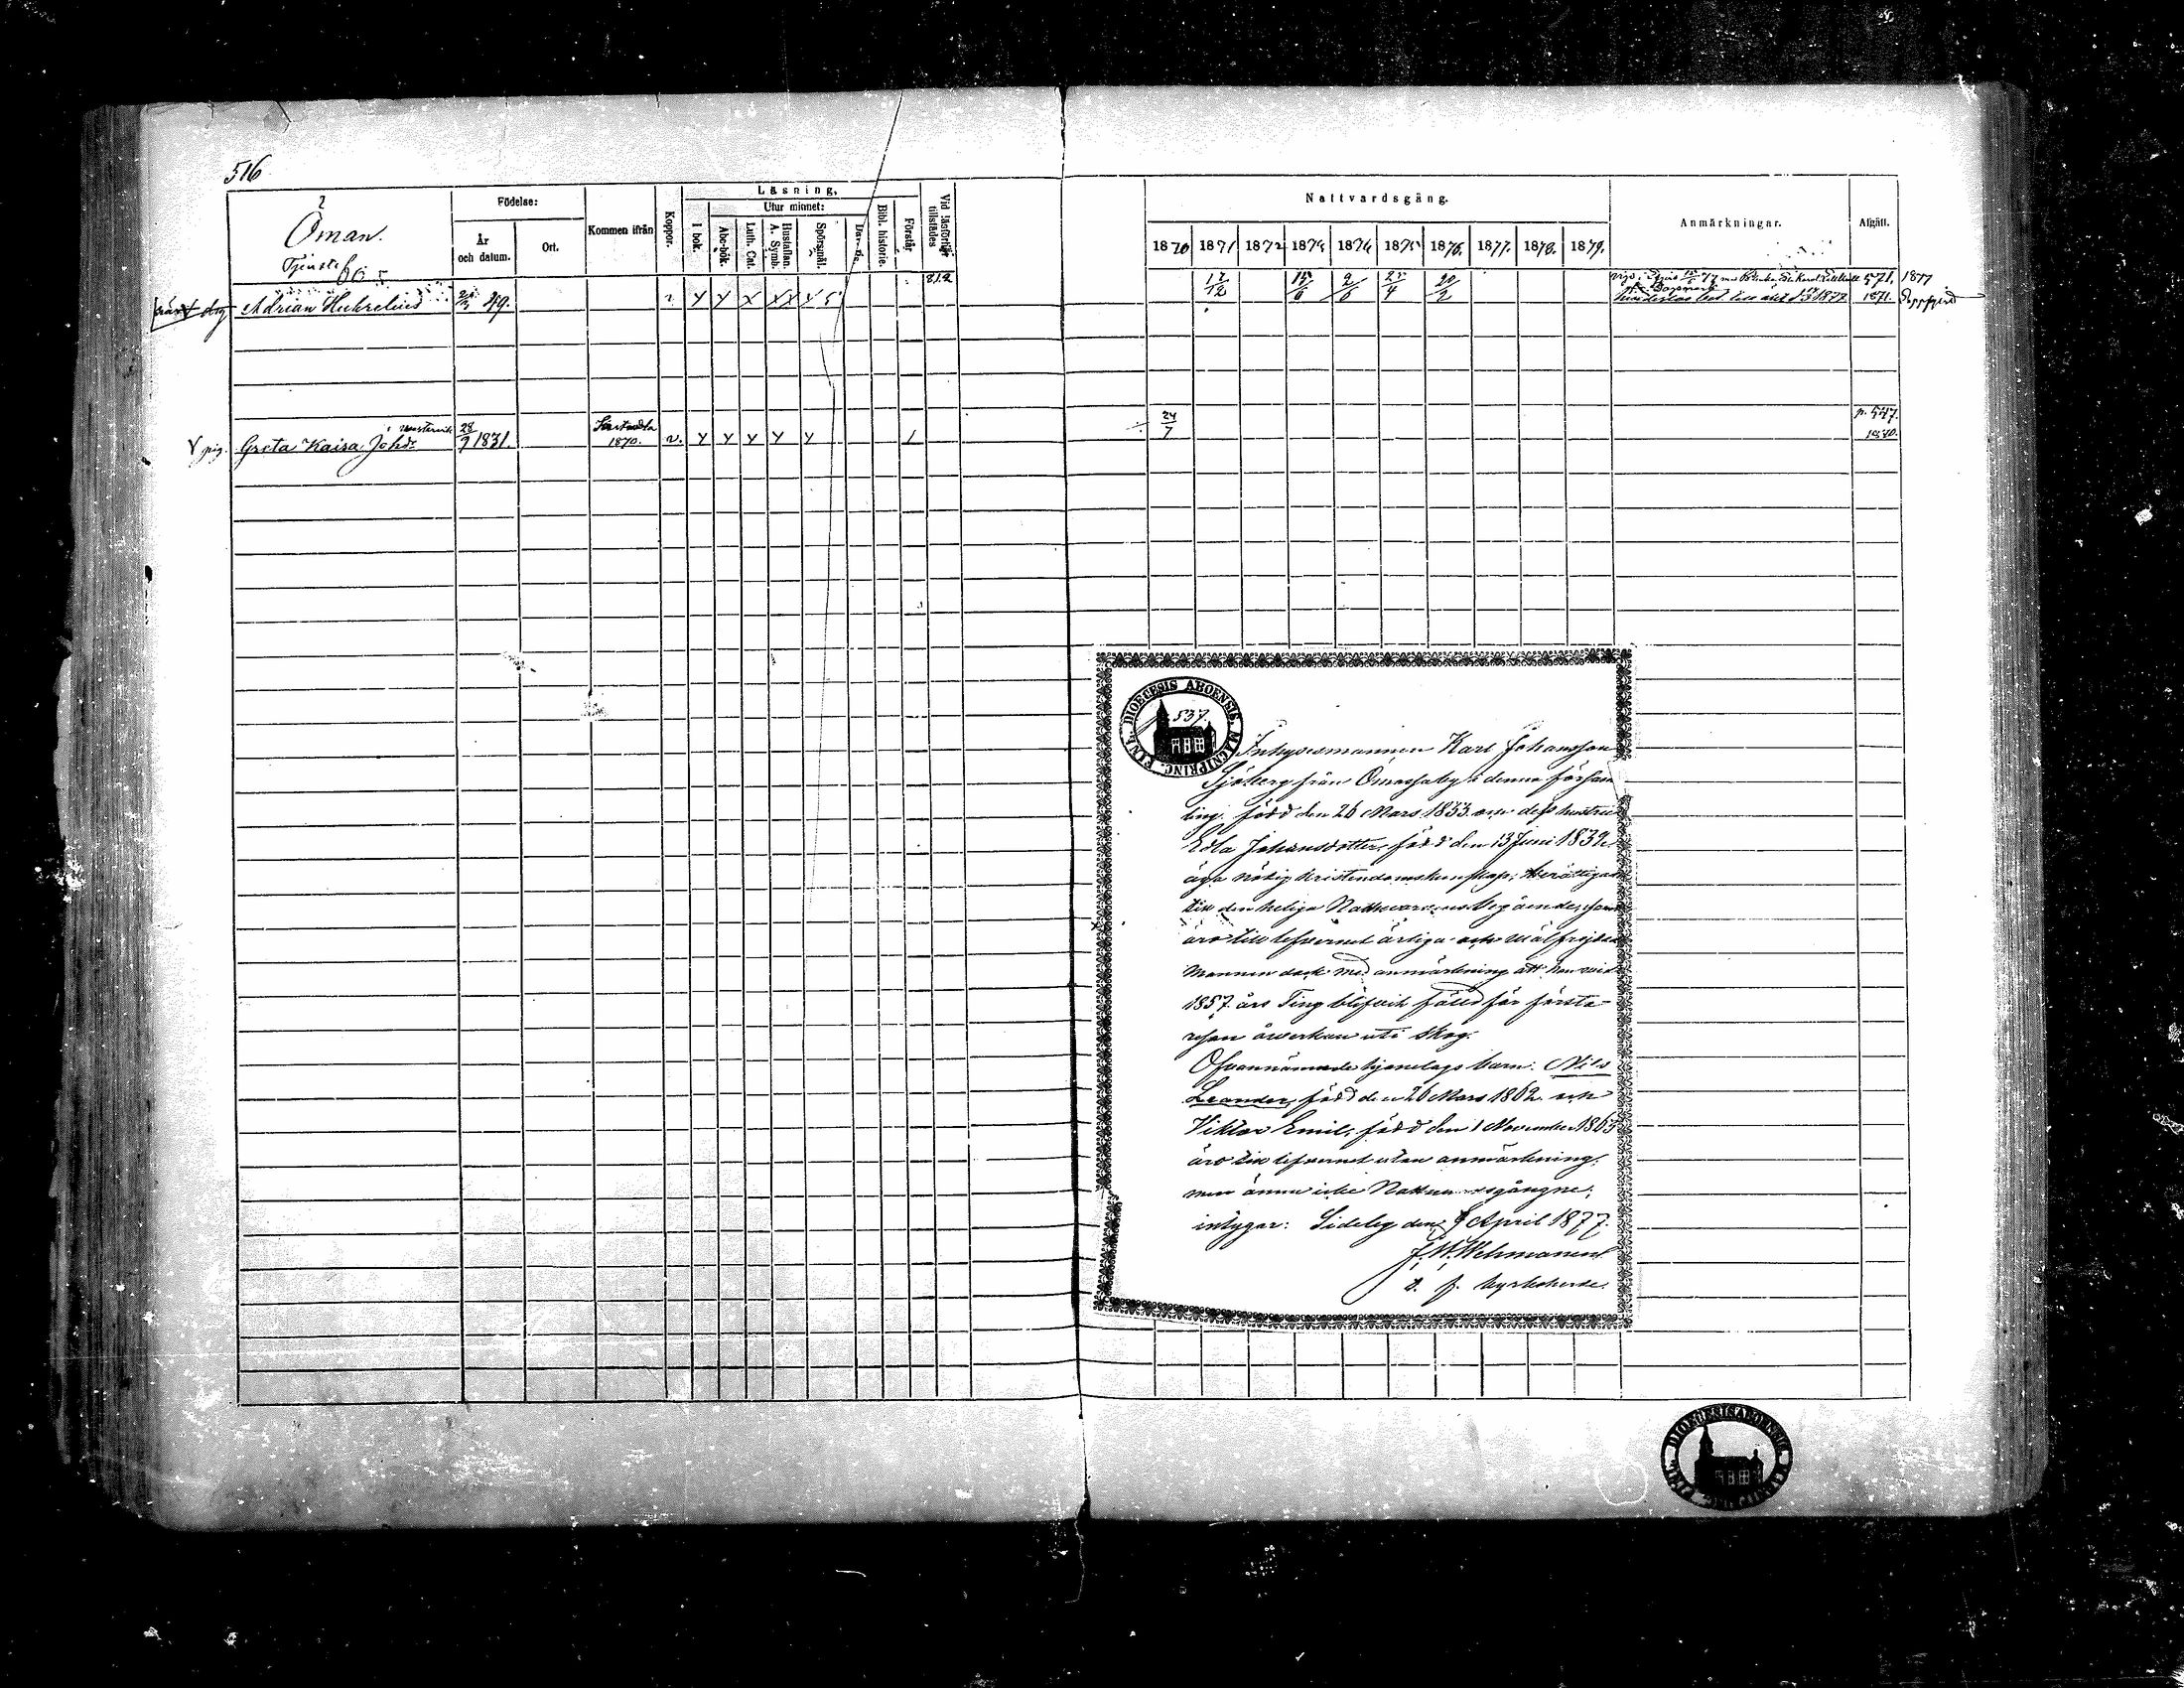 516
2
Öman.
Tjenstef
Födelse:
År och datum.
Ort.
Kommen ifrån
Koppor.
Läsning,
I bok.
Utur minnet:
Abc-bok.
Luth. Cat.
Hustaflan. A. Symb.
Spörsmål.
Bibl. historie.
Förstår
Vid läsförhör tillstädes
Nattvardsgång.
1870 1871 1872 1873 1874 1875 1876. 1877. 1878. 1879.
Anmärkningar.
Afgått.
Adrian 49. 17/12 15/6 9/6 25/4 20/2 571. 1877
1871.
Greta Kaisa Johdr 28/9 1831. 1870. v. 24/7 p. 547.
DIOECESIS ABOENSIS MAGNIPRINC. FINL.
537.
Inhysesmannen Karl Johansson
Sjöberg från Omossaby i denna försam
ling, född den 26 Mars 1833 och dess hustru
Edla Johansdotter, född den 13 Juni 1832
äga nödig kristendomskunskap, berättigade
till den heliga Nattvardens begående, samt
äro till lefvernet ärliga och välfrejdade
Mannen dock med anmärkning att han vid
1857 års Ting blifvit fälld för första
resan åverkan uti skog.
Ofvannämnde hjonelags barn: Nils
Leander, född den 26 Mars 1862 och
Viktor Emil, född den 1 November 1863
äro till lefvernet utan anmärkning,
men ännu icke Nattvardsgångne;
intygar: Sideby den April 1877.
t. f. kyrkoherde.
DIOECESIS ABOENSIS MAGNIPRINC. FINL.